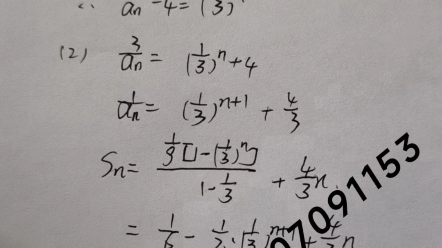 ∴ aₙ -4 = (3)
(2) 3/aₙ = (1/3)ⁿ + 4
1/aₙ = (1/3)ⁿ⁺¹ + 4/3
Sₙ = 1/9[1-(1/3)ⁿ] / (1 - 1/3) + 4/3 n
= 1/6 - 1/2·(1/3)ⁿ⁺¹ + 4/3 n
07091153